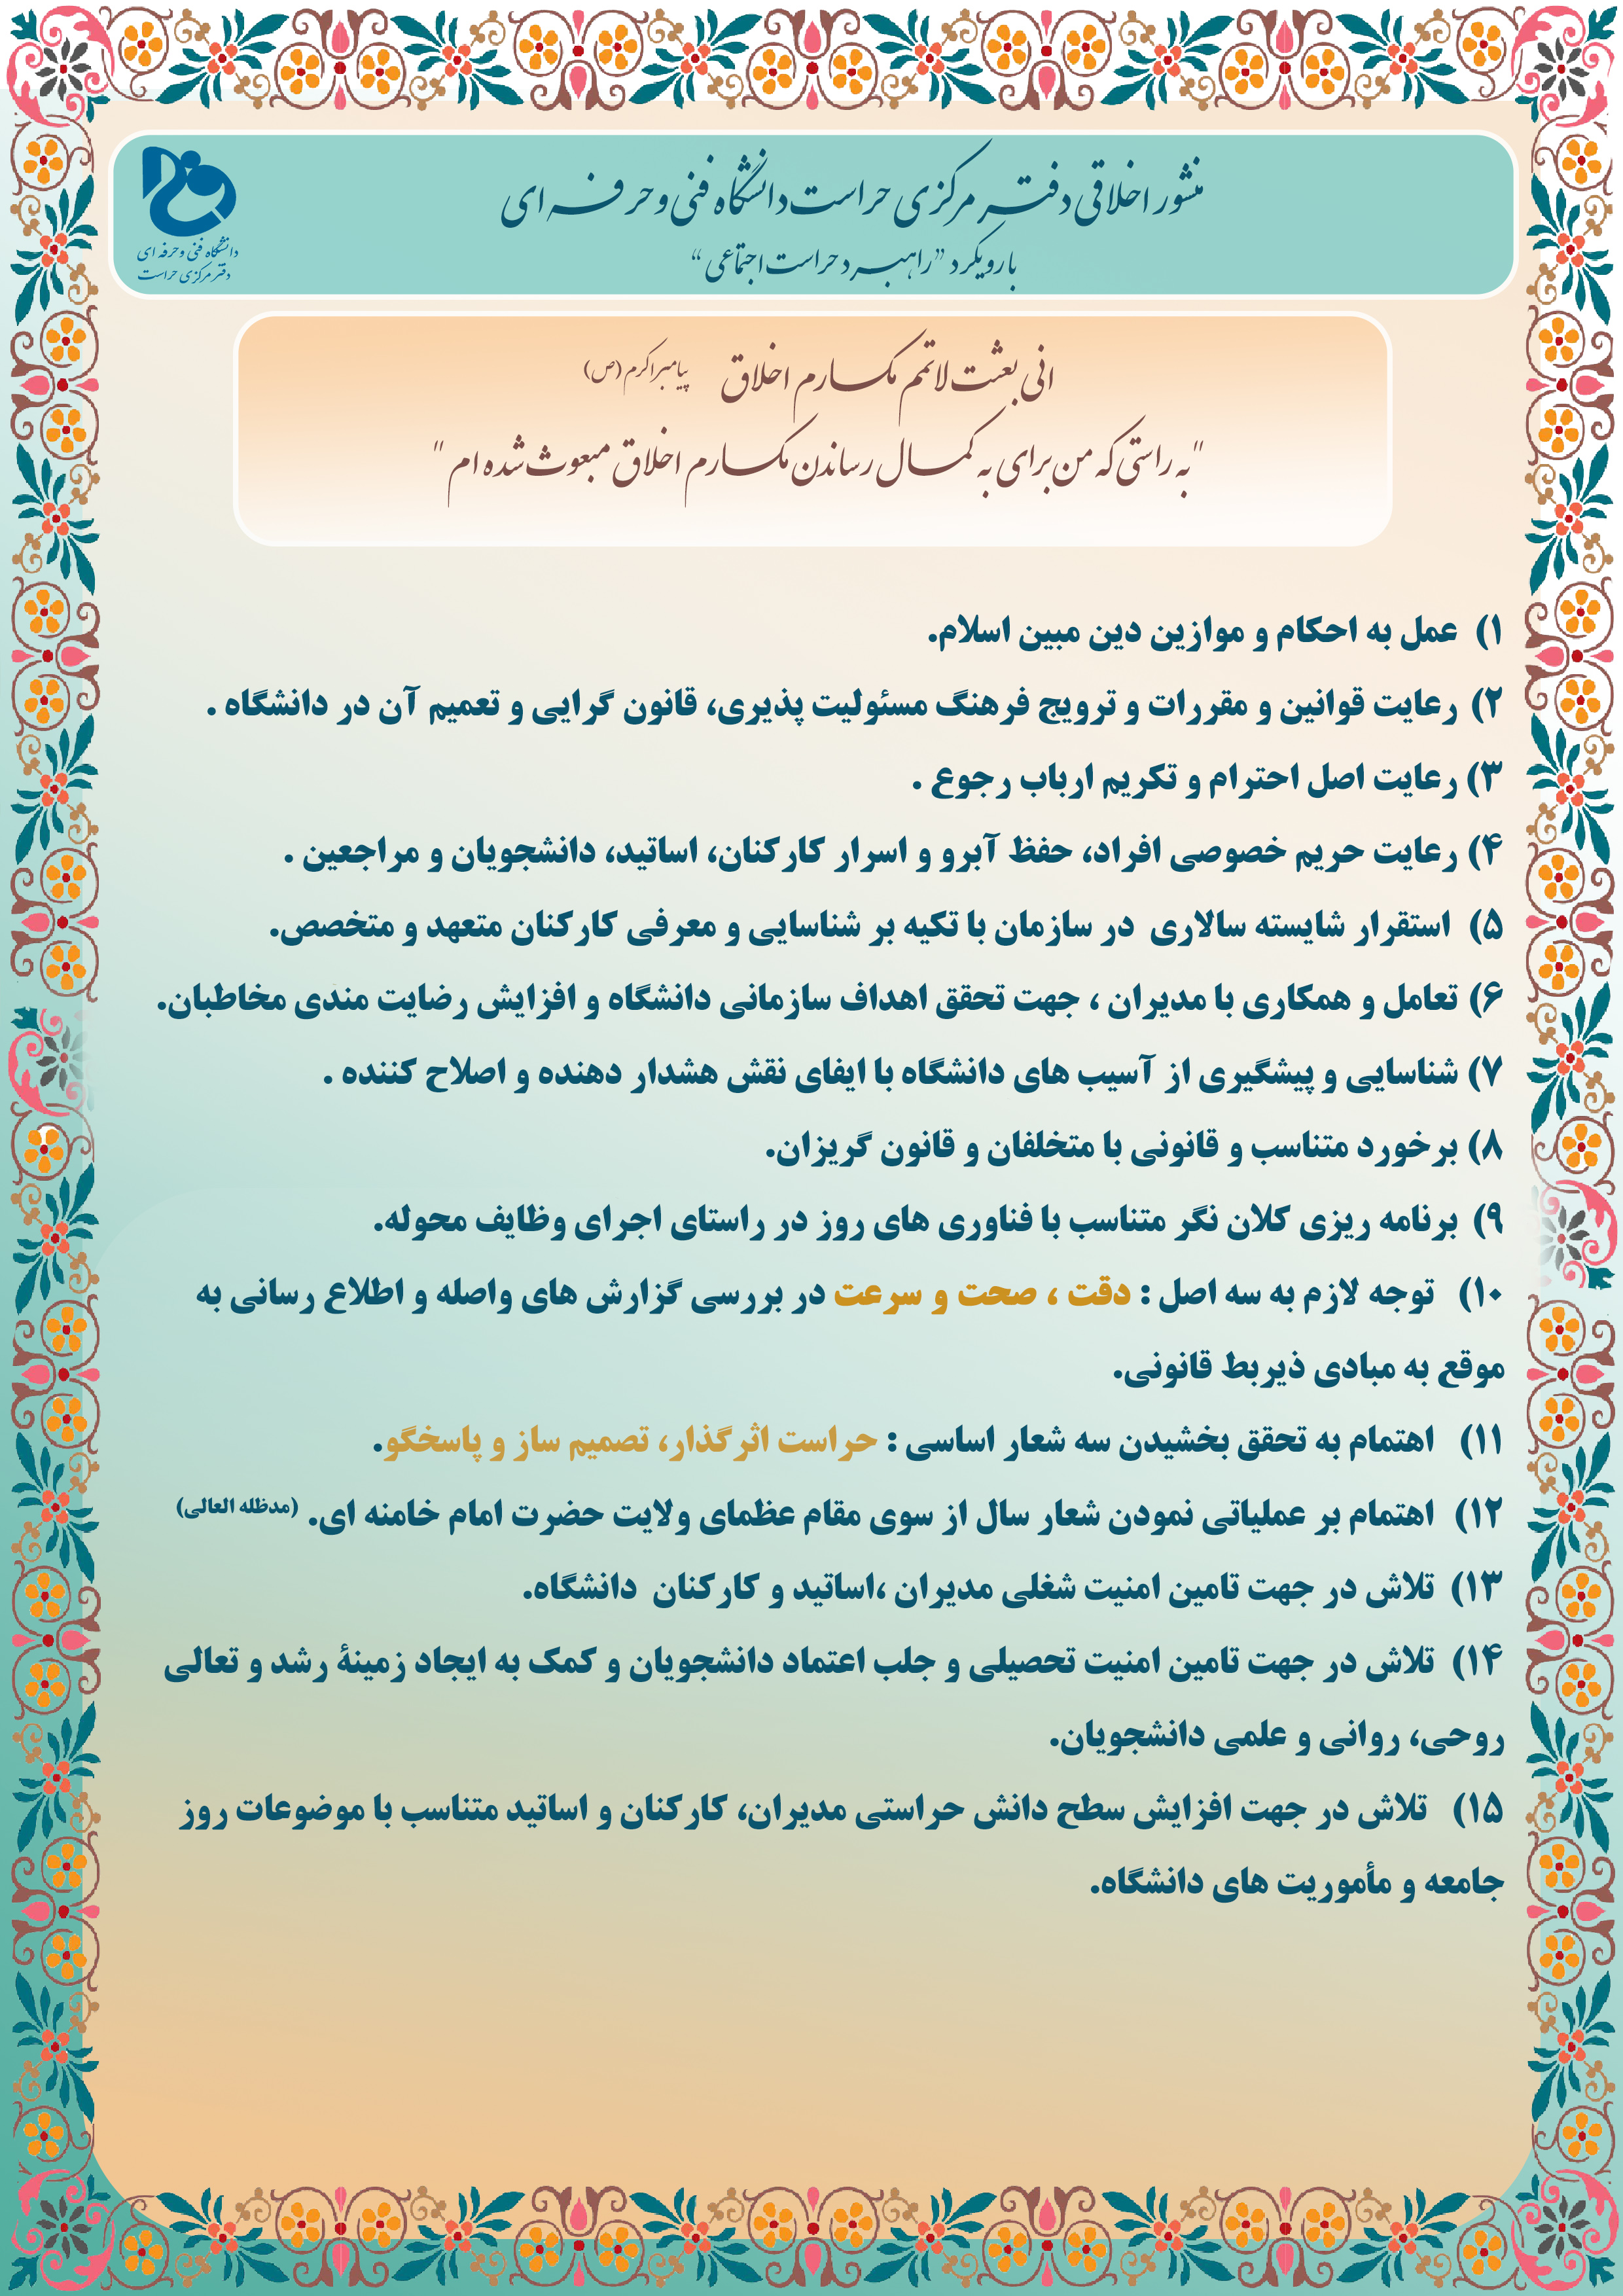 منشور اخلاقی دفتر مرکزی حراست دانشگاه فنی و حرفه ای
با رویکرد "راهبرد حراست اجتماعی"
دانشگاه فنی و حرفه ای
دفتر مرکزی حراست
انی بعثت لاتمم مکارم اخلاق پیامبر اکرم (ص)
"به راستی که من برای به کمال رساندن مکارم اخلاق مبعوث شده ام"
۱) عمل به احکام و موازین دین مبین اسلام.
۲) رعایت قوانین و مقررات و ترویج فرهنگ مسئولیت پذیری، قانون گرایی و تعمیم آن در دانشگاه .
۳) رعایت اصل احترام و تکریم ارباب رجوع .
۴) رعایت حریم خصوصی افراد، حفظ آبرو و اسرار کارکنان، اساتید، دانشجویان و مراجعین .
۵) استقرار شایسته سالاری در سازمان با تکیه بر شناسایی و معرفی کارکنان متعهد و متخصص.
۶) تعامل و همکاری با مدیران ، جهت تحقق اهداف سازمانی دانشگاه و افزایش رضایت مندی مخاطبان.
۷) شناسایی و پیشگیری از آسیب های دانشگاه با ایفای نقش هشدار دهنده و اصلاح کننده .
۸) برخورد متناسب و قانونی با متخلفان و قانون گریزان.
۹) برنامه ریزی کلان نگر متناسب با فناوری های روز در راستای اجرای وظایف محوله.
۱۰) توجه لازم به سه اصل : دقت ، صحت و سرعت در بررسی گزارش های واصله و اطلاع رسانی به
موقع به مبادی ذیربط قانونی.
۱۱) اهتمام به تحقق بخشیدن سه شعار اساسی : حراست اثرگذار، تصمیم ساز و پاسخگو.
۱۲) اهتمام بر عملیاتی نمودن شعار سال از سوی مقام عظمای ولایت حضرت امام خامنه ای. (مدظله العالی)
۱۳) تلاش در جهت تامین امنیت شغلی مدیران ،اساتید و کارکنان دانشگاه.
۱۴) تلاش در جهت تامین امنیت تحصیلی و جلب اعتماد دانشجویان و کمک به ایجاد زمینهٔ رشد و تعالی
روحی، روانی و علمی دانشجویان.
۱۵) تلاش در جهت افزایش سطح دانش حراستی مدیران، کارکنان و اساتید متناسب با موضوعات روز
جامعه و مأموریت های دانشگاه.